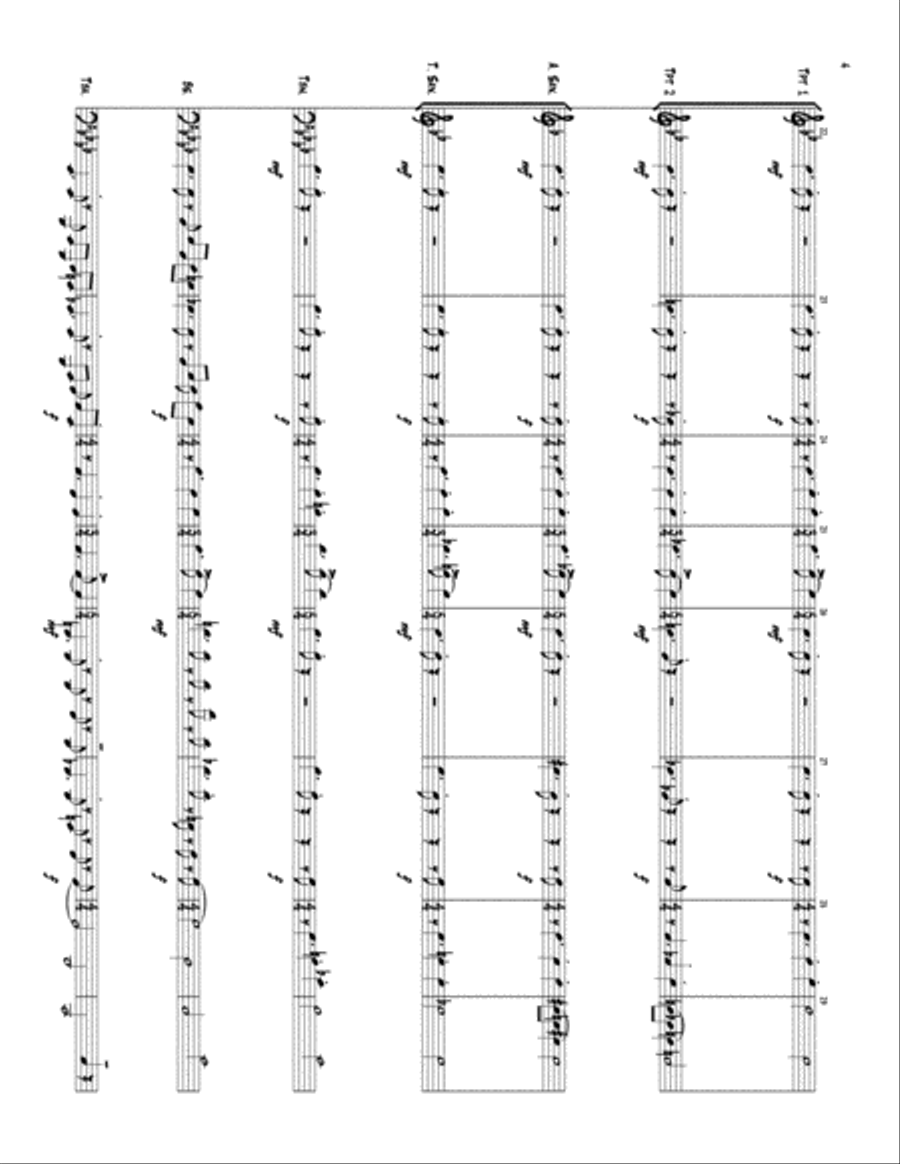 4
TPT 1
TPT 2
A. SAX.
T. SAX.
TBN.
BS.
TBA.
22
23
24
25
26
27
28
29
mf
mf
mf
mf
mf
f
f
f
f
f
f
f
mf
mf
mf
mf
mf
mf
mf
f
f
f
f
f
f